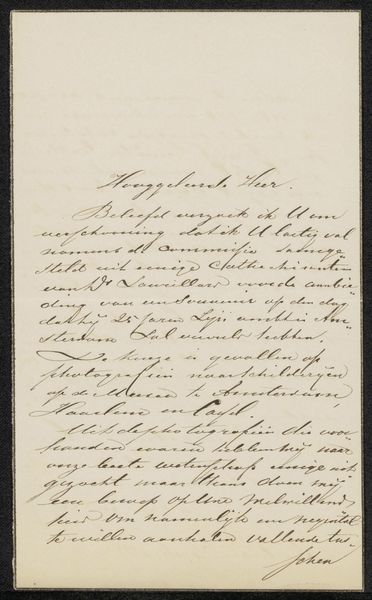 Hooggeleerde Heer.
Beleefd verzoek ik U om
verschooning dat ik U lastig val
namens de commissie samenge-
steld uit eenige Catechisanten
van Ds Laurillard voor de aanbie-
ding van een Souvenir op den dag
dat hij 25 jaren Zijn ambt in Am-
sterdam Zal vervuld hebben.
De keuze is gevallen op
photografiën naar schilderijen
op de Musea te Amsterdam,
Haarlem en
Uit de photografiën die voor
handen waren hebben wij naar
onze beste wetenschap eenige uit
gezocht maar thans doen wij
een beroep op Uwe welwillend
heid om namelijk een negental
te willen aanhalen vallende tus-
schen